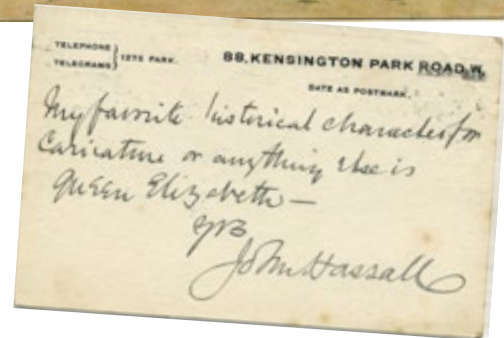 TELEPHONE
TELEGRAMS } 1275 PARK.
88, KENSINGTON PARK ROAD, W.
DATE AS POSTMARK.
My favorite historical character for
Caricature or anything else is
Queen Elizabeth —
John Hassall